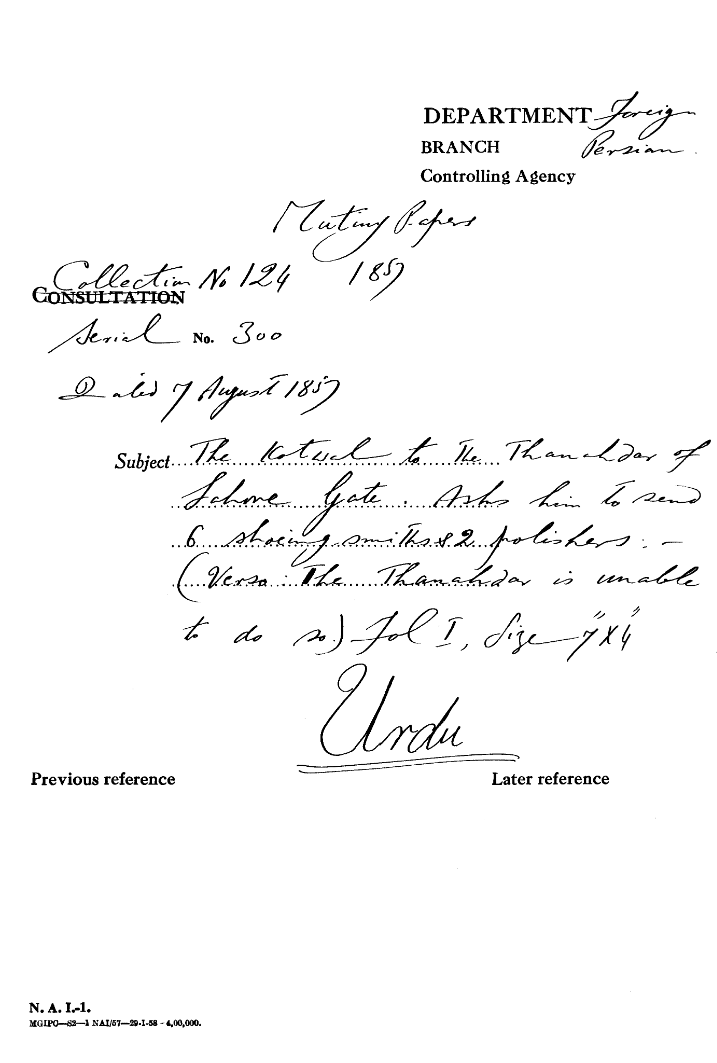 DEPARTMENT Foreign
BRANCH Persian
Controlling Agency
Mutiny Papers
Collection No 124 1857
CONSULTATION
Serial No. 300
Dated 7 August 1857
Subject The Kotwal to the Thanahdar of
Lahore Gate. Asks him to send
6 shoeing smiths & 2 polishers. –
(Verso: The Thanahdar is unable
to do so.) Fol I, Size 7"X4"
Urdu
Previous reference Later reference
N. A. I.-1.
MGIPC—S2—1 NAI/57—29-1-58 - 4,00,000.